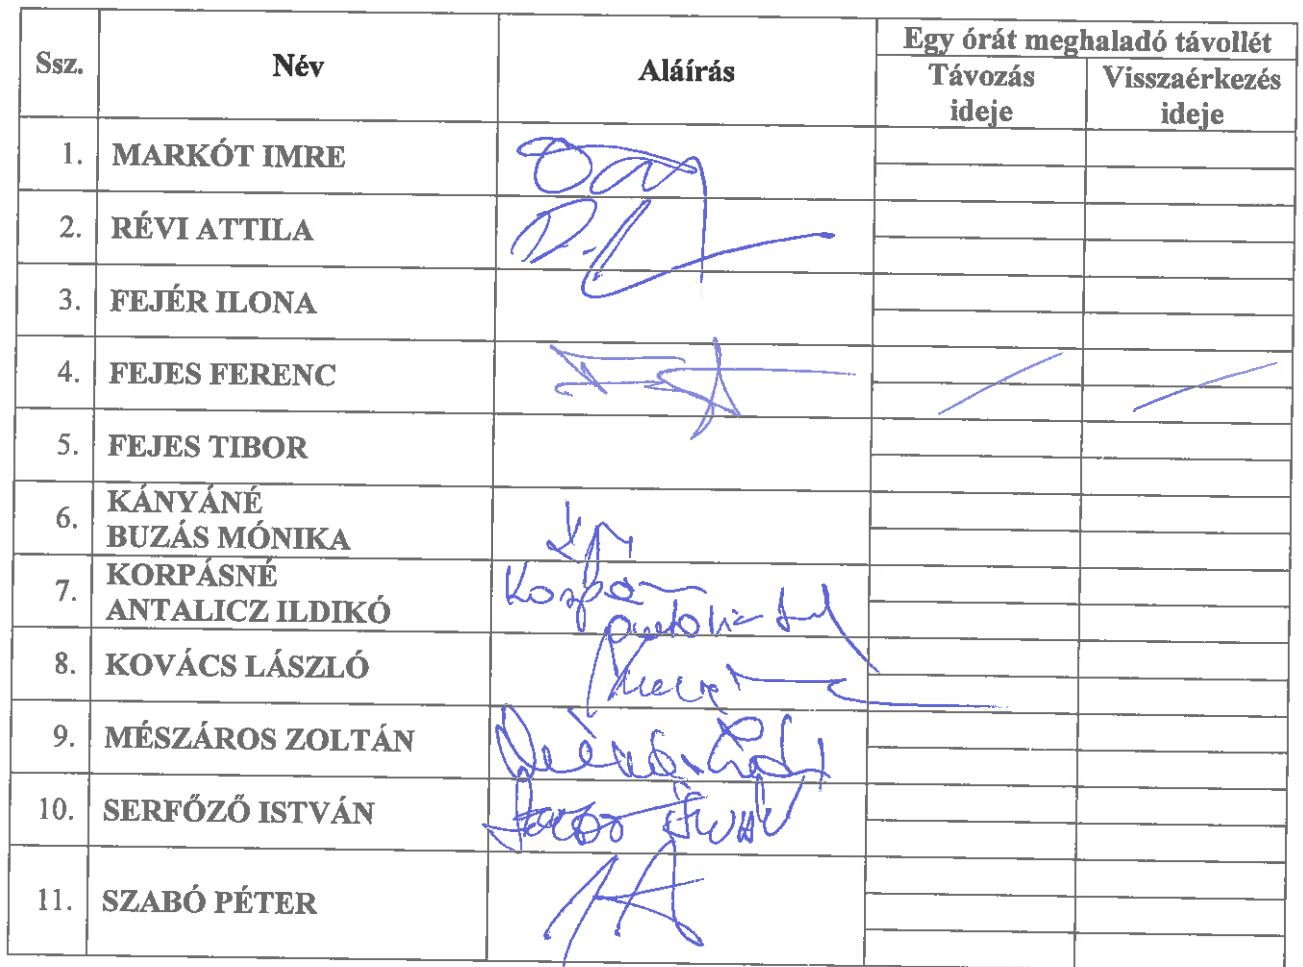 Ssz.
Név
Aláírás
Egy órát meghaladó távollét
Távozás
ideje
Visszaérkezés
ideje
1. MARKÓT IMRE
2. RÉVI ATTILA
3. FEJÉR ILONA
4. FEJES FERENC
5. FEJES TIBOR
6. KÁNYÁNÉ
BUZÁS MÓNIKA
7. KORPÁSNÉ
ANTALICZ ILDIKÓ
8. KOVÁCS LÁSZLÓ
9. MÉSZÁROS ZOLTÁN
10. SERFŐZŐ ISTVÁN
11. SZABÓ PÉTER